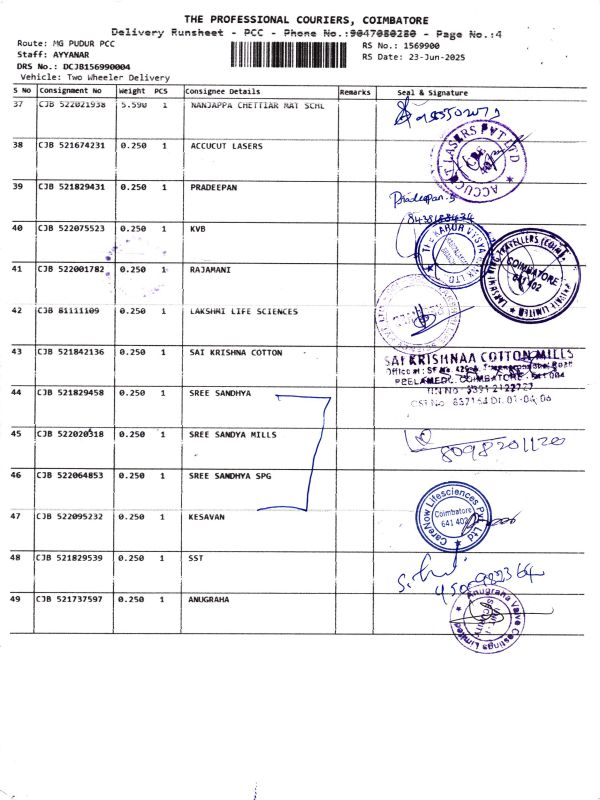 THE PROFESSIONAL COURIERS, COIMBATORE
Delivery Runsheet - PCC - Phone No.:9047080280 - Page No.:4
Route: MG PUDUR PCC
RS No.: 1569900
Staff: AYYANAR
RS Date: 23-Jun-2025
DRS No.: DCJB156990004
Vehicle: Two Wheeler Delivery
S No Consignment No Weight PCS Consignee Details Remarks Seal & Signature
37 CJB 522021938 5.590 1 NANJAPPA CHETTIAR MAT SCHL
38 CJB 521674231 0.250 1 ACCUCUT LASERS
ACCUCUT LASERS PVT LTD
39 CJB 521829431 0.250 1 PRADEEPAN
Pradeepan.S
8438188434
40 CJB 522075523 0.250 1 KVB
THE KARUR VYSYA BANK LTD
41 CJB 522001782 0.250 1 RAJAMANI
COIMBATORE
641 402
42 CJB 81111109 0.250 1 LAKSHMI LIFE SCIENCES
43 CJB 521842136 0.250 1 SAI KRISHNA COTTON
SAI KRISHNAA COTTON MILLS
PEELAMEDU, COIMBATORE - 641 004
44 CJB 521829458 0.250 1 SREE SANDHYA
45 CJB 522020318 0.250 1 SREE SANDYA MILLS
8098201120
46 CJB 522064853 0.250 1 SREE SANDHYA SPG
47 CJB 522095232 0.250 1 KESAVAN
CareNow Lifesciences Pvt Ltd
Coimbatore
641 402
48 CJB 521829539 0.250 1 SST
49 CJB 521737597 0.250 1 ANUGRAHA
Anugraha Valve Castings Limited
UNIT-I
SECURITY